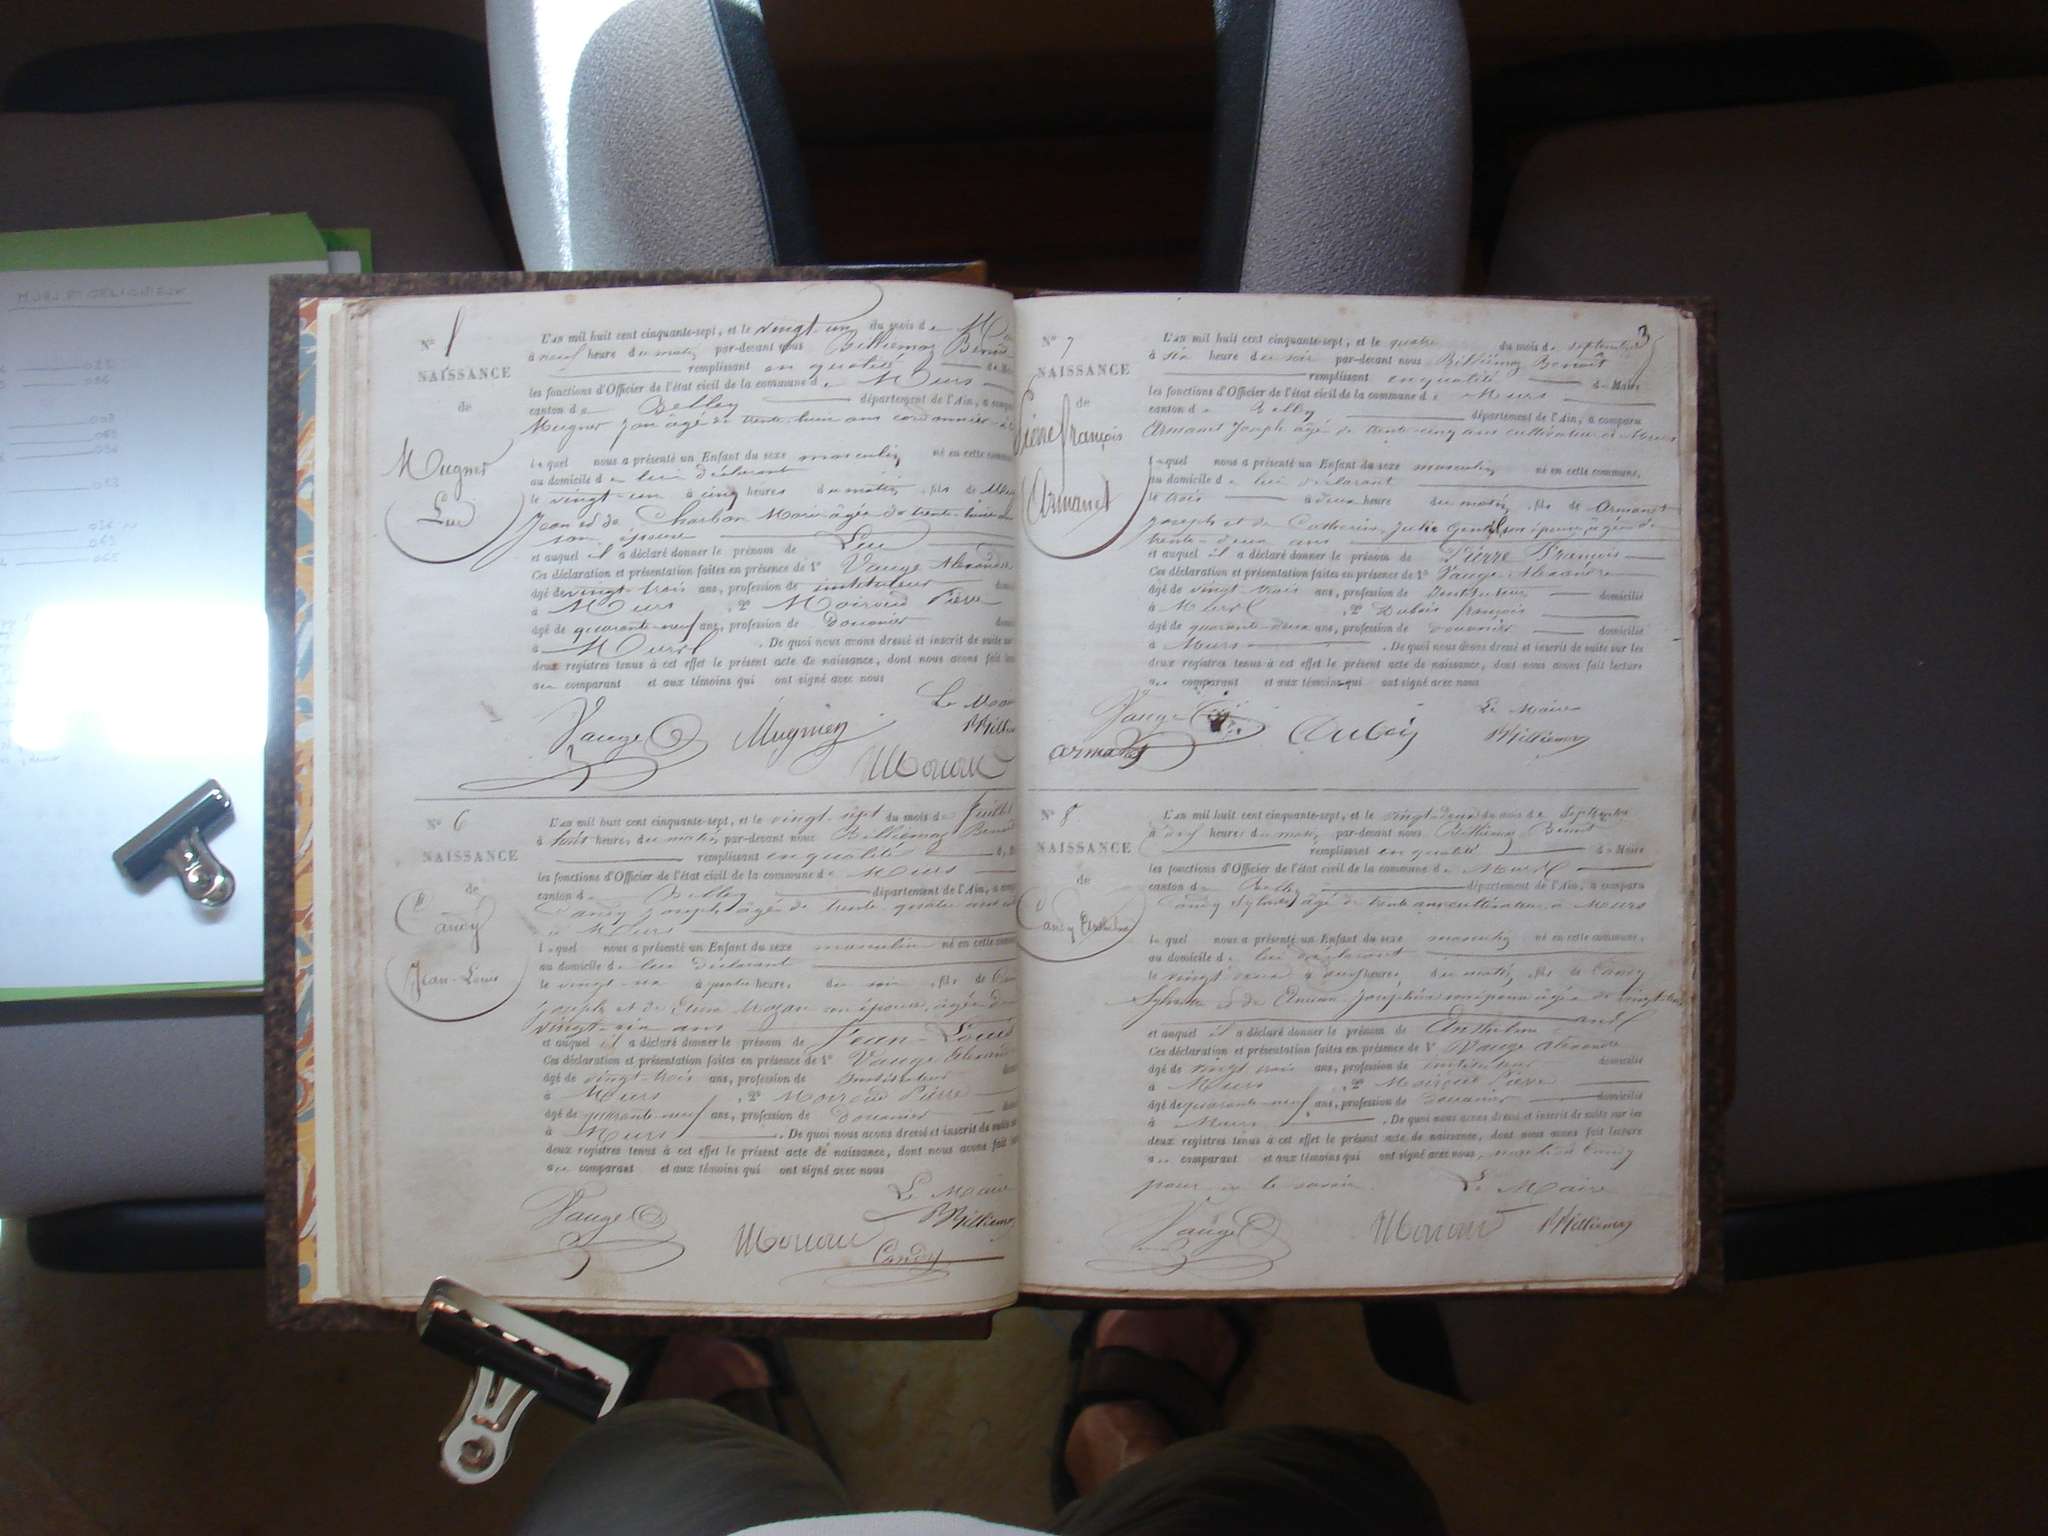 Nº 5
NAISSANCE
de
Mugnier
Luc
L'an mil huit cent cinquante-sept, et le vingt-un du mois de
à neuf heure du matin par-devant nous Billiemaz Benoît
remplissant en qualité de
les fonctions d'Officier de l'état civil de la commune de Murs
canton de Belley département de l'Ain, a comparu
Mugnier Jean âgé de trente-huit ans cordonnier
lequel nous a présenté un Enfant du sexe masculin né en cette commune
au domicile de lui déclarant
le vingt-un à cinq heures du matin, fils de
Jean et de Charbon Marie âgée de trente
son épouse
et auquel il a déclaré donner le prénom de Luc
Ces déclaration et présentation faites en présence de 1º Vauge Alexandre
âgé de vingt-trois ans, profession de instituteur
à Murs, 2º Moiroud Pierre
âgé de quarante-neuf ans, profession de Douanier
à Murs. De quoi nous avons dressé et inscrit de suite sur
deux registres tenus à cet effet le présent acte de naissance, dont nous avons fait
au comparant et aux témoins qui ont signé avec nous
Le Maire
Vauge Mugnier Billie
Moiroud
Nº 6
NAISSANCE
de
Candy
Jean-Louis
L'an mil huit cent cinquante-sept, et le vingt-sept du mois de Juillet
à huit heures du matin par-devant nous Billiemaz Benoît
remplissant en qualité
les fonctions d'Officier de l'état civil de la commune de Murs
canton de Belley département de l'Ain, a comp
Candy Joseph âgé de trente-quatre ans
à Murs
lequel nous a présenté un Enfant du sexe masculin né en cette commune
au domicile de lui déclarant
le vingt-six à quatre heures du soir, fils de
Joseph et de son épouse, âgée de
vingt-six ans
et auquel il a déclaré donner le prénom de Jean-Louis
Ces déclaration et présentation faites en présence de 1º Vauge Alexandre
âgé de vingt-trois ans, profession de Instituteur
à Murs, 2º Moiroud Pierre
âgé de quarante-neuf ans, profession de Douanier
à Murs. De quoi nous avons dressé et inscrit de suite sur
deux registres tenus à cet effet le présent acte de naissance, dont nous avons fait
au comparant et aux témoins qui ont signé avec nous
Le Maire
Vauge Billiemaz
Moiroud
Candy
3
Nº 7
NAISSANCE
de
Pierre François
Armanet
L'an mil huit cent cinquante-sept, et le quatre du mois de septembre
à six heure du soir par-devant nous Billiemaz Benoît
remplissant en qualité de Maire
les fonctions d'Officier de l'état civil de la commune de Murs
canton de Belley département de l'Ain, a comparu
Armanet Joseph âgé de trente-cinq ans cultivateur à Murs
lequel nous a présenté un Enfant du sexe masculin né en cette commune,
au domicile de lui déclarant
le trois à deux heure du matin, fils de Armanet
Joseph et de Catherine Julie Gentil son épouse, âgée de
trente-deux ans
et auquel il a déclaré donner le prénom de Pierre François
Ces déclaration et présentation faites en présence de 1º Vauge Alexandre
âgé de vingt-trois ans, profession de Instituteur domicilié
à Murs, 2º Dubois françois
âgé de quarante-deux ans, profession de Douanier domicilié
à Murs. De quoi nous avons dressé et inscrit de suite sur les
deux registres tenus à cet effet le présent acte de naissance, dont nous avons fait lecture
au comparant et aux témoins qui ont signé avec nous
Le Maire
Vauge Dubois Billiemaz
armanet
Nº 8
NAISSANCE
de
Candy Anthelme
L'an mil huit cent cinquante-sept, et le vingt-deux du mois de Septembre
à neuf heures du matin par-devant nous Billiemaz Benoît
remplissant en qualité de Maire
les fonctions d'Officier de l'état civil de la commune de Murs
canton de Belley département de l'Ain, a comparu
Candy Sylvestre âgé de trente ans cultivateur à Murs
lequel nous a présenté un Enfant du sexe masculin né en cette commune,
au domicile de lui déclarant
le vingt-deux à heures du matin, fils de Candy
Sylvestre et de Joséphine son épouse âgée de vingt
ans
et auquel il a déclaré donner le prénom de Anthelme
Ces déclaration et présentation faites en présence de 1º Vauge Alexandre
âgé de vingt trois ans, profession de instituteur domicilié
à Murs, 2º Moiroud Pierre
âgé de quarante-neuf ans, profession de Douanier domicilié
à Murs. De quoi nous avons dressé et inscrit de suite sur les
deux registres tenus à cet effet le présent acte de naissance, dont nous avons fait lecture
au comparant et aux témoins qui ont signé avec nous, non Candy
pour ne le savoir. Le Maire
Vauge Moiroud Billiemaz